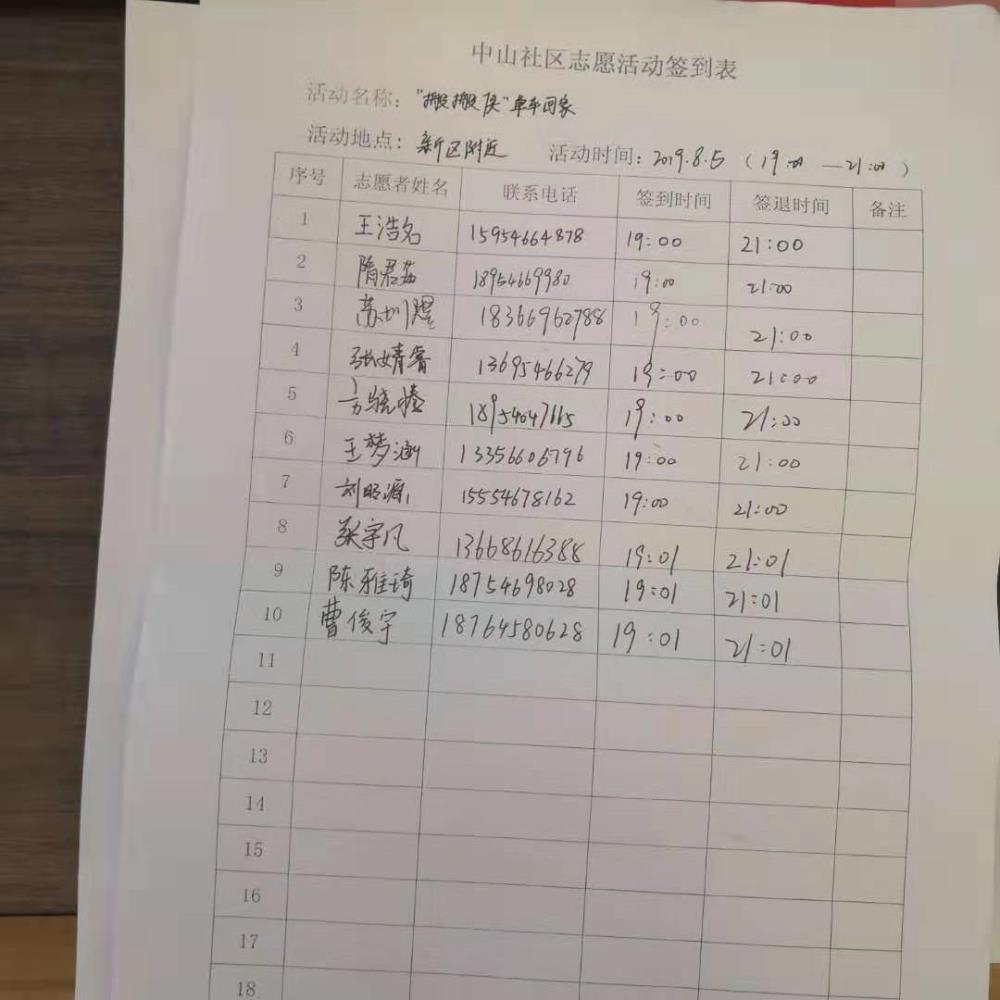 中山社区志愿活动签到表
活动名称："搬搬侠"单车回家
活动地点：新区附近 活动时间：2019.8.5（19:00—21:00）
序号 志愿者姓名 联系电话 签到时间 签退时间 备注
1 王浩名 15954664878 19:00 21:00
2 隋君茹 18954669980 19:00 21:00
3 苏圳煜 18366962788 19:00 21:00
4 张婧睿 13695466279 19:00 21:00
5 19:00 21:00
6 王梦涵 13356606796 19:00 21:00
7 刘昭源 15554678162 19:00 21:00
8 张宇凡 13668616388 19:01 21:01
9 陈雅琦 18754698028 19:01 21:01
10 曹俊宇 18764580628 19:01 21:01
11
12
13
14
15
16
17
18